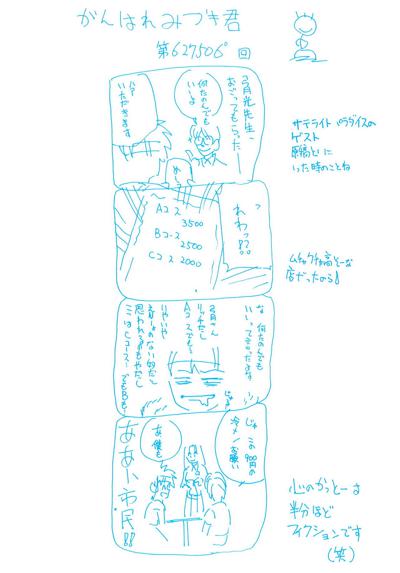 がんばれみづき君
第627506回
弓月光先生、
おごってもらったー
何たのんでも
いーよ
ハァ
いただきます
サテライト パラダイスの
ゲスト
原稿とりに
いった時のことね
Aコース
3500
Bコース
2500
Cコース 2000
ムチャクチャ高そーな
店だったのよ!
な 何たのんでも
いいって言ったよな
弓月さん
リッチだし
Aコースでも…
いやいや
思われるのもやだし
ここはCコース… でもBも…
じゃ この900円の
冷メンお願い
あ、僕も
ああ、市民!!
心のかっとーは
半分ほど
フィクションです
(笑)